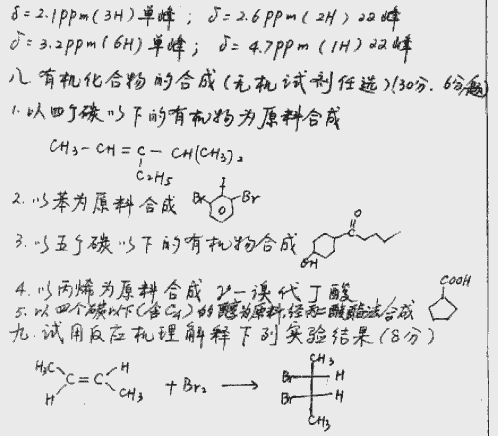 δ=2.1ppm(3H)单峰; δ=2.6ppm(2H)双峰
δ=3.2ppm(6H)单峰; δ=4.7ppm(1H)双峰
八.有机化合物的合成(无机试剂任选)(30分.6分/题)
1.以四个碳以下的有机物为原料合成
CH3-CH=C-CH(CH3)2
C2H5
2.以苯为原料合成
I
Br Br
3.以五个碳以下的有机物合成
O
C
OH
4.以丙烯为原料合成 γ-溴代丁酸
5.以四个碳以下(含C4)的醇为原料,经丙二酸酯法合成
COOH
九.试用反应机理解释下列实验结果(8分)
H3C H
C=C
H CH3
+Br2 →
CH3
Br H
Br H
CH3